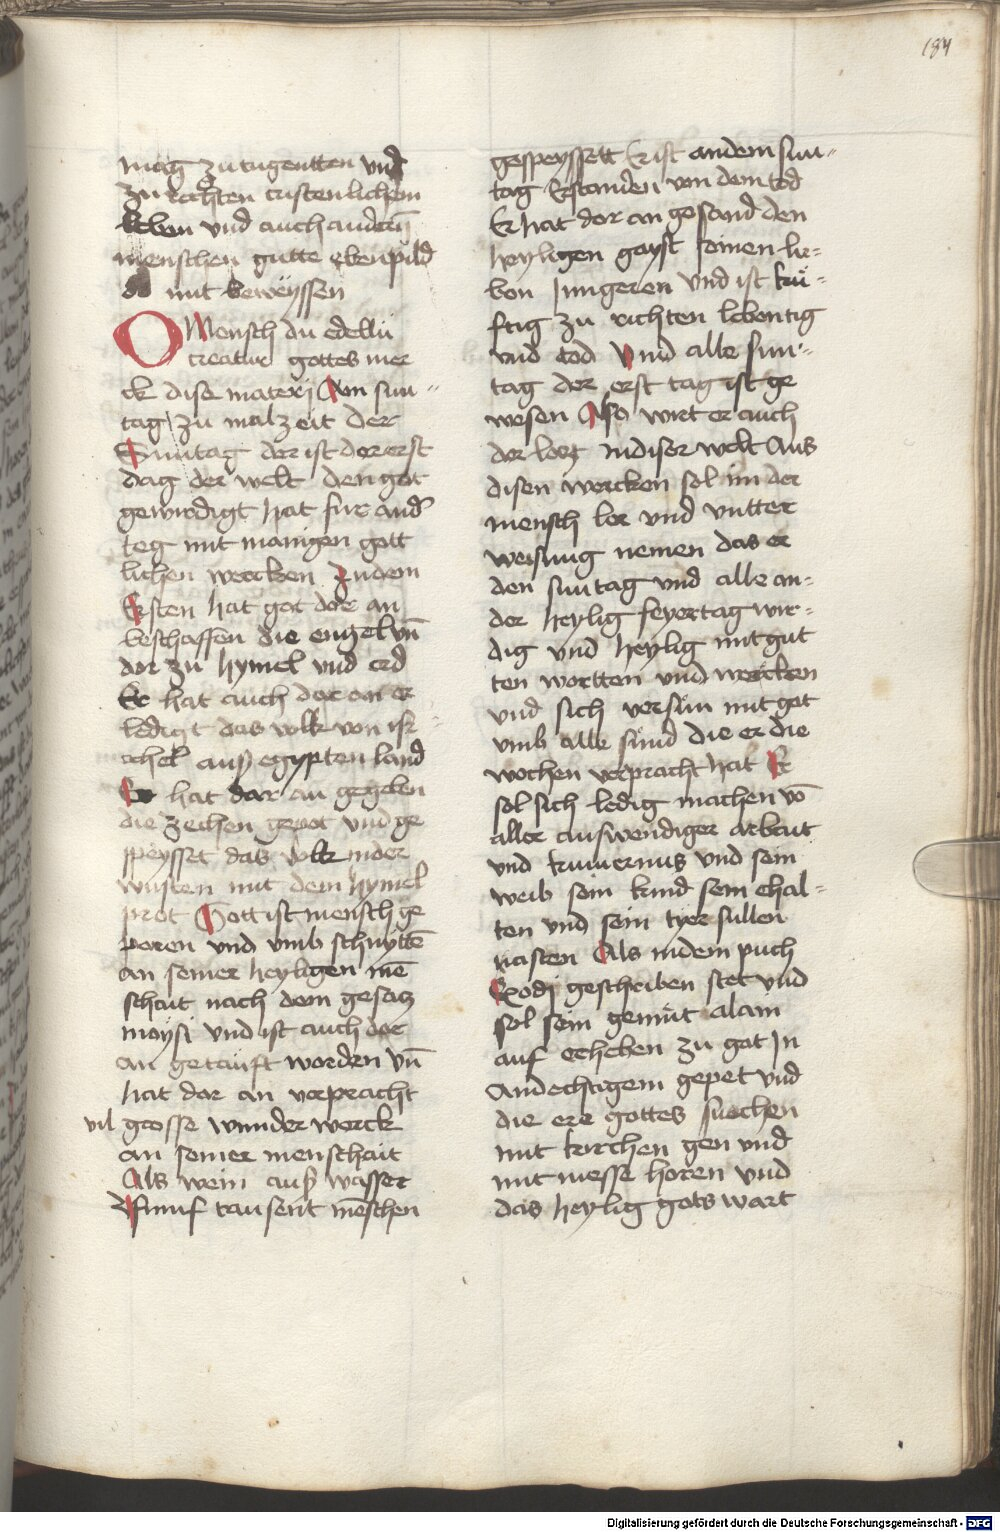 184
mag zu tugentten vnd
zu rechten cristenlichem
leben vnd auch andern̄
menschen gutte ebenpild
do mit beweÿssen
O Mensch du edellu
creatur gottes mer
ck dise matery Am sun
tag zu malzeit der
Suntag der ist der erst
dag der welt den got
gewirdigt hat fur and
teg mit manigen gott
lichen wercken Indem
Ersten hat got dor an
beschaffen die engel vn̄
dor zu hymel vnd erd
Er hat auch dor an er
ledigt das volk von isr
ahel auß egypten land
Er hat dar an gegeben
die zechen gepot vnd ge
speysset das volk inder
wusten mit dem hymel
prot Gott ist mensch ge
poren vnd vmb schnytte̅
an seiner heyligen me̅
schait nach dem gesacz
moysi vnd ist auch dor
an getaufft worden vn̄
hat dor an verpracht
vil grosse wunder werck
an seiner menschait
Als wein auß wasser
Vfunf tausent me̅schen
gespeyssett Er ist an dem sun-
tag Erstanden von dem tod
Er hat dor an gesand den
heyligen geyst seinen lie-
ben Jungeren vnd ist kuͤ-
ftig zu richten lebentig
vnd tod Vnd alle sun-
tag der erst tag ist ge
wesen Also wirt er auch
der lecz in diser welt Aus
disen wercken sol im der
mensch ler vnd vntter
weisung nemen das er
den suntag vnd alle an-
der heylig feyertag wir-
dig vnd heylig mit gut
ten wortten vnd wercken
vnd sich versün mit got
vmb alle sünd die er die
wochen verpracht hat Er
sol sich ledig machen vo̅
aller auswendiger arbait
vnd kumernus vnd sein
weib sein kind sein ehal-
ten vnd sein tyer sullen
rasten Als indem puch
Exodj geschriben stet vnd
sol sein gemüt alain
auf erheben zu got In
Andechtigem gepet vnd
die ere gottes suechen
mit kirchen gen vnd
mit messe horen vnd
das heylig gots wart
Digitalisierung gefördert durch die Deutsche Forschungsgemeinschaft - DFG